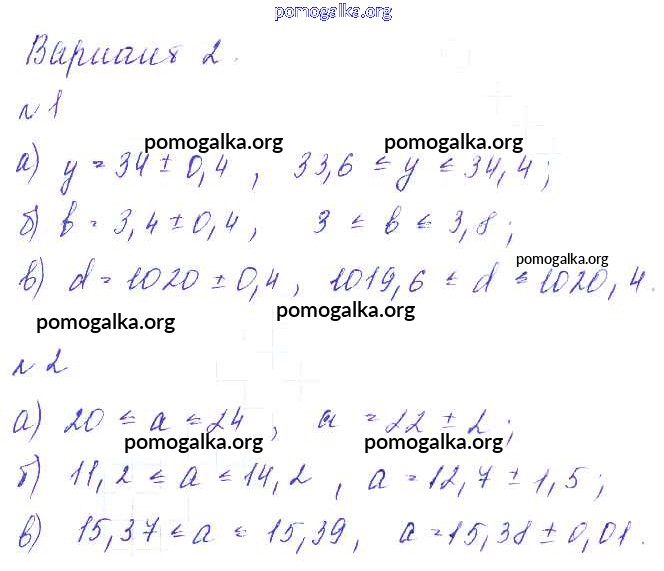 pomogalka.org
Вариант 2.
№1
pomogalka.org pomogalka.org
а) y = 34 ± 0,4, 33,6 ≤ y ≤ 34,4;
б) b = 3,4 ± 0,4, 3 ≤ b ≤ 3,8;
pomogalka.org
в) d = 1020 ± 0,4, 1019,6 ≤ d ≤ 1020,4.
pomogalka.org pomogalka.org
№2
а) 20 ≤ a ≤ 24, a = 22 ± 2;
pomogalka.org pomogalka.org
б) 11,2 ≤ a ≤ 14,2, a = 12,7 ± 1,5;
в) 15,37 ≤ a ≤ 15,39, a = 15,38 ± 0,01.